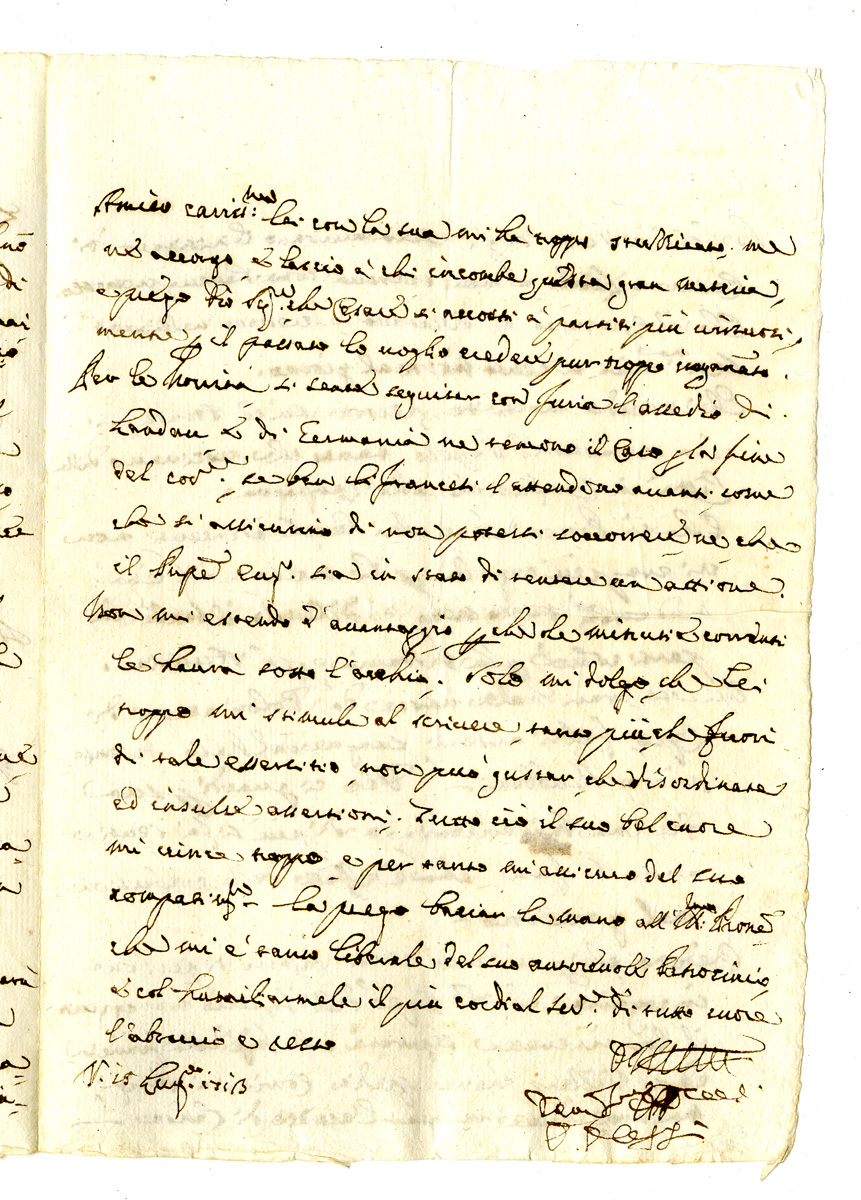 Amico cariss:mo lei con la sua mi hà troppo mortificato. me
ne accorgo, e lascio à chi incombe questa gran materia,
e prego Dio Sig.re che Cesare si accosti à partiti più virtuosi,
mentre il passato lo voglio creder pur troppo ingannato.
Per le Novità si sente seguitar con furia l'assedio di
Landau, e di Germania ne temono il Caso p la fine
del cor.te, se ben li Francesi l'attendono avanti, come
che si assicurino di non potersi soccorrere, ne che
il Prnpe Eug.o sia in stato di tentare un attione.
Non mi estendo d'avantaggio p che le minute correnti
le haurà sotto l'occhio. Solo mi dolgo, che Lei
troppo mi stimula al scrivere, tanto più che fuori
di tale essercitio, non può gustar che disordinate
ed insulse assertioni. Tutto ciò il suo bel cuore
mi vince troppo, e per tanto mi assicuro del suo
compatim.to. La prego baciar la mano all' Ill.mo Prone
che mi è tanto liberale del suo autorevole Patrocinio,
e col humiliarmele il più cordial Ser.re di tutto cuore
l'abraccio e resto
V. 15 Lug.o 1713